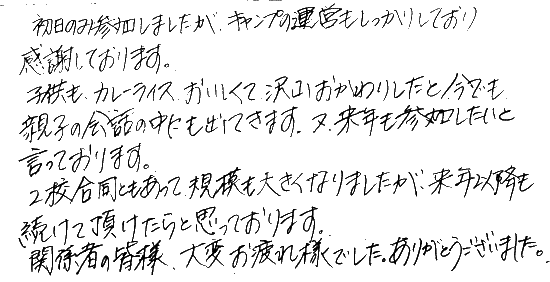 初日のみ参加しましたが、キャンプの運営もしっかりしており
感謝しております。
子供も、カレーライス、おいしくて、沢山おかわりしたと今でも
親子の会話の中にも出てきます。又、来年も参加したいと
言っております。
2校合同ともあって、規模も大きくなりましたが、来年以降も
続けて頂けたらと思っております。
関係者の皆様、大変お疲れ様でした。ありがとうございました。